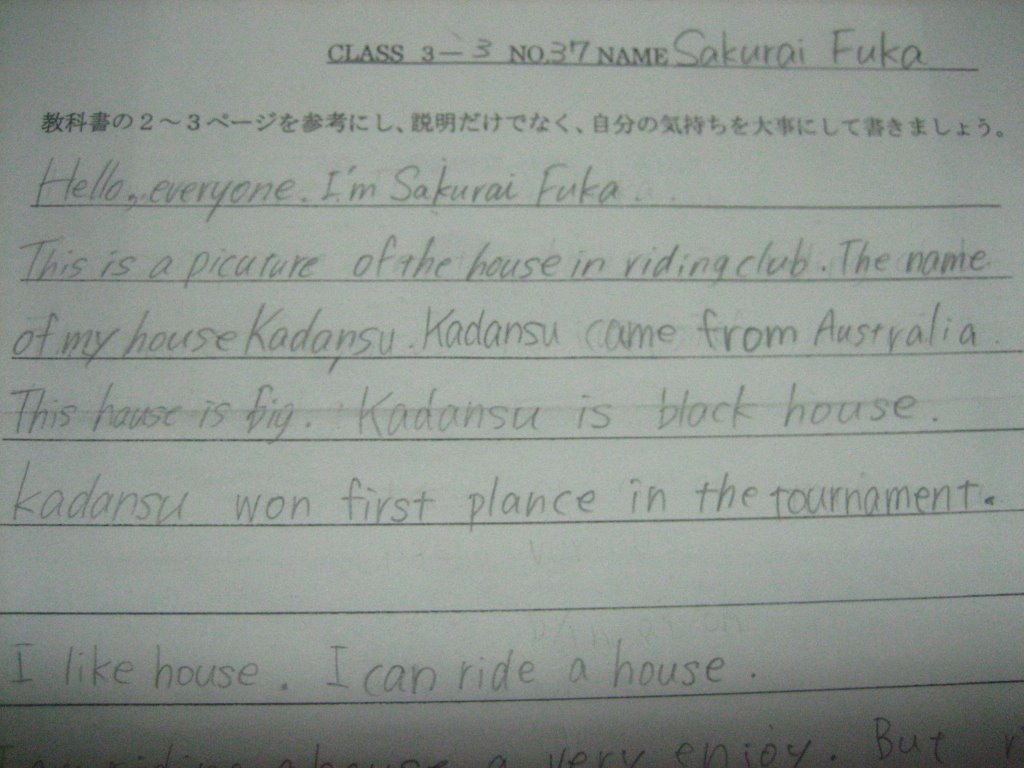 CLASS 3-3 NO.37 NAME Sakurai Fuka
教科書の2～3ページを参考にし、説明だけでなく、自分の気持ちを大事にして書きましょう。
Hello, everyone. I'm Sakurai Fuka.
This is a picuture of the house in riding club. The name
of my house Kadansu. Kadansu came from Australia.
This hause is big. Kadansu is black house.
kadansu won first plance in the tournament.
I like house. I can ride a house.
riding a house a very enjoy. But